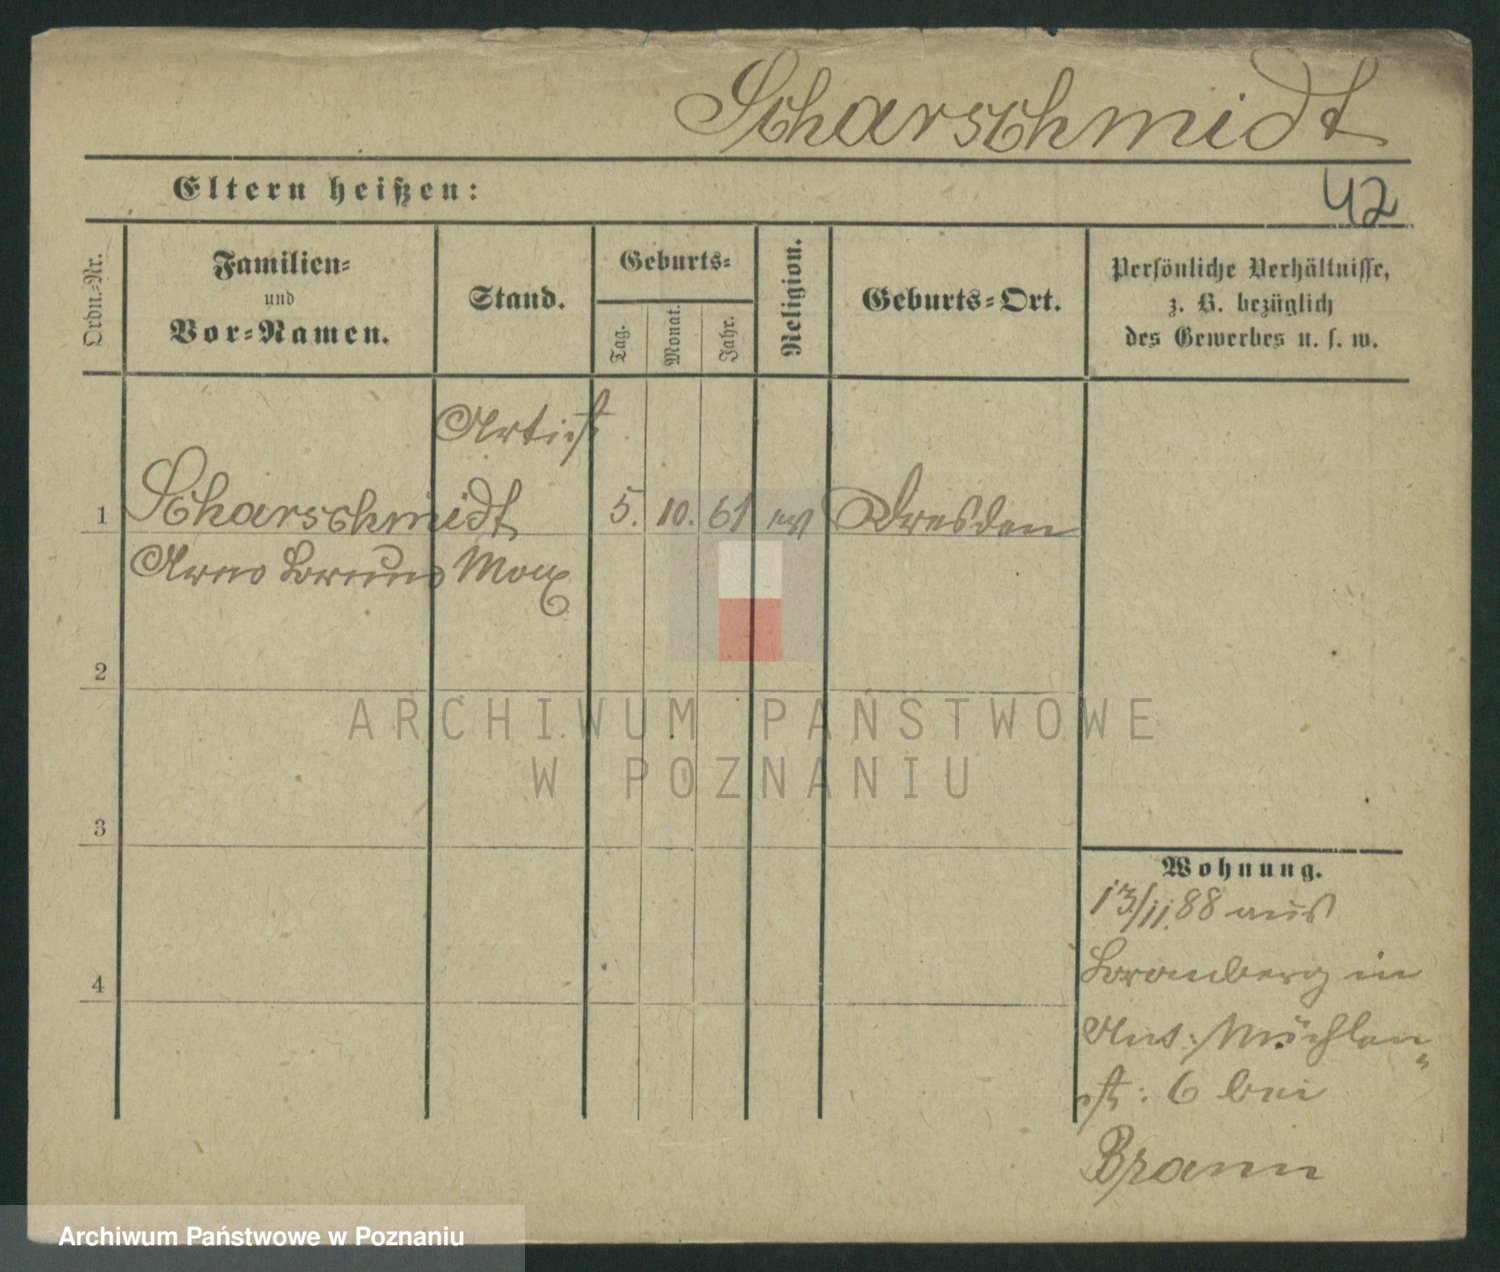 Scharschmidt
Eltern heißen:
42
Ordn.-Nr.
Familien-
und
Vor-Namen.
Stand.
Geburts-
Tag.
Monat.
Jahr.
Religion.
Geburts-Ort.
Persönliche Verhältnisse,
z. B. bezüglich
des Gewerbes u. s. w.
Artist
1 Scharschmidt 5. 10. 61 ev Dresden
Arno Bruno Max
2
3
4
Wohnung.
13/11.88 aus
Bromberg in
Mühlen
st: 6 bei
Brann
ARCHIWUM PAŃSTWOWE
W POZNANIU
Archiwum Państwowe w Poznaniu